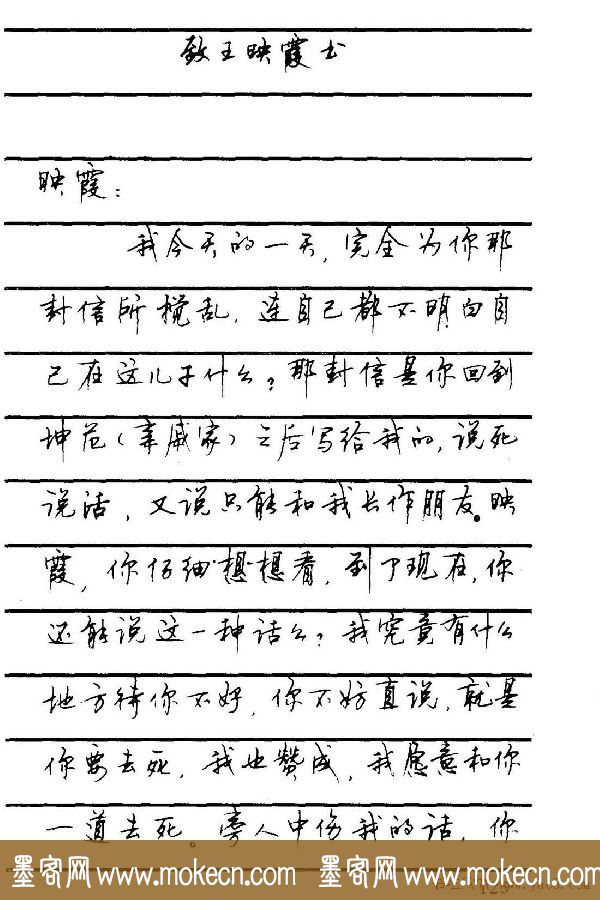 致王映霞书
映霞：
我今天的一天，完全为你那
封信所搅乱，连自己都不明白自
己在这儿干什么？那封信是你回到
坤范（亲戚家）之后写给我的，说死
说活，又说只能和我长作朋友。映
霞，你仔细想想看，到了现在，你
还能说这一种话么？我究竟有什么
地方待你不好，你不妨直说，就是
你要去死，我也赞成，我愿意和你
一道去死。旁人中伤我的话，你
墨客网 www.mokecn.com 墨客网 www.mokecn.com